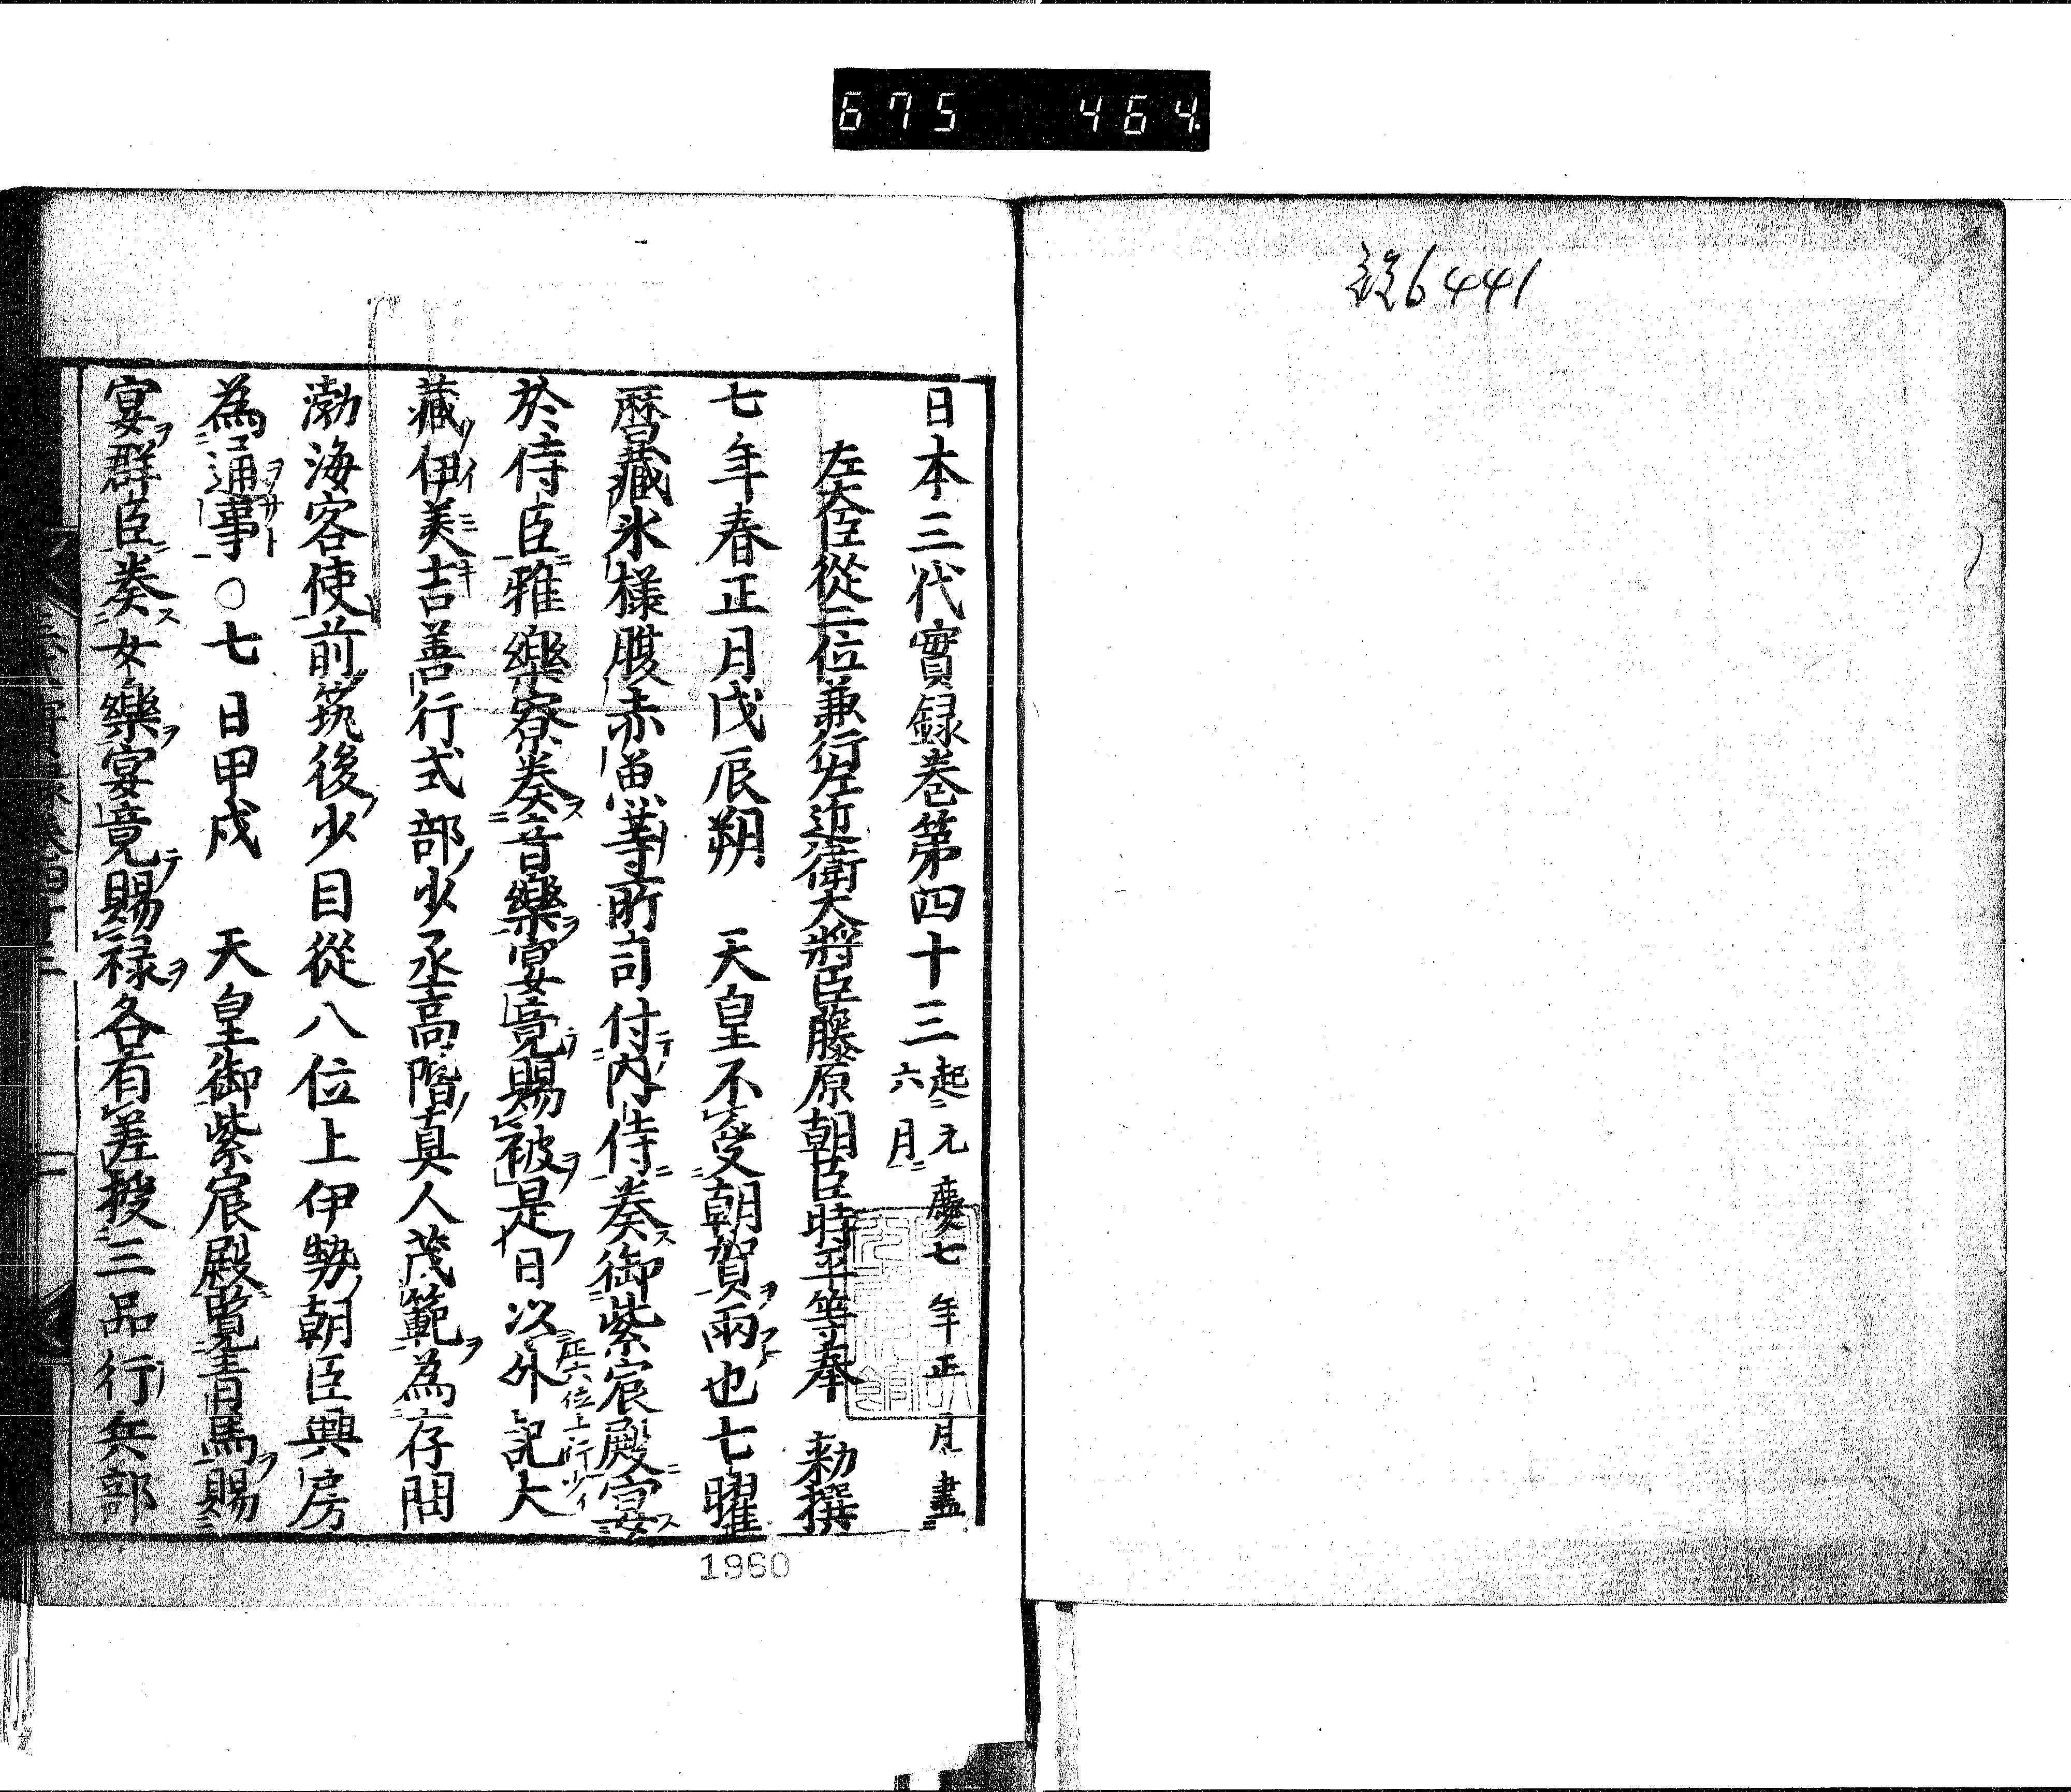 675 464
設6441
日本三代實録巻第四十三 起元慶七年正月盡六月
左大臣從二位兼行左近衛大將臣藤原朝臣時平等奉 勅撰
七年春正月戊辰朔 天皇不受朝賀雨也七曜
暦藏氷様腹赤魚等所司付内侍奏御紫宸殿宴
於侍臣雅樂寮奏音樂宴竟賜被是日以外記大
正六位上行少イ
藏伊美吉善行式部少丞高階真人茂範為存問
渤海客使前筑後少目從八位上伊勢朝臣興房
為通事○七日甲戌 天皇御紫宸殿覧青馬賜
宴群臣奏女樂宴竟賜禄各有差授三品行兵部
1960